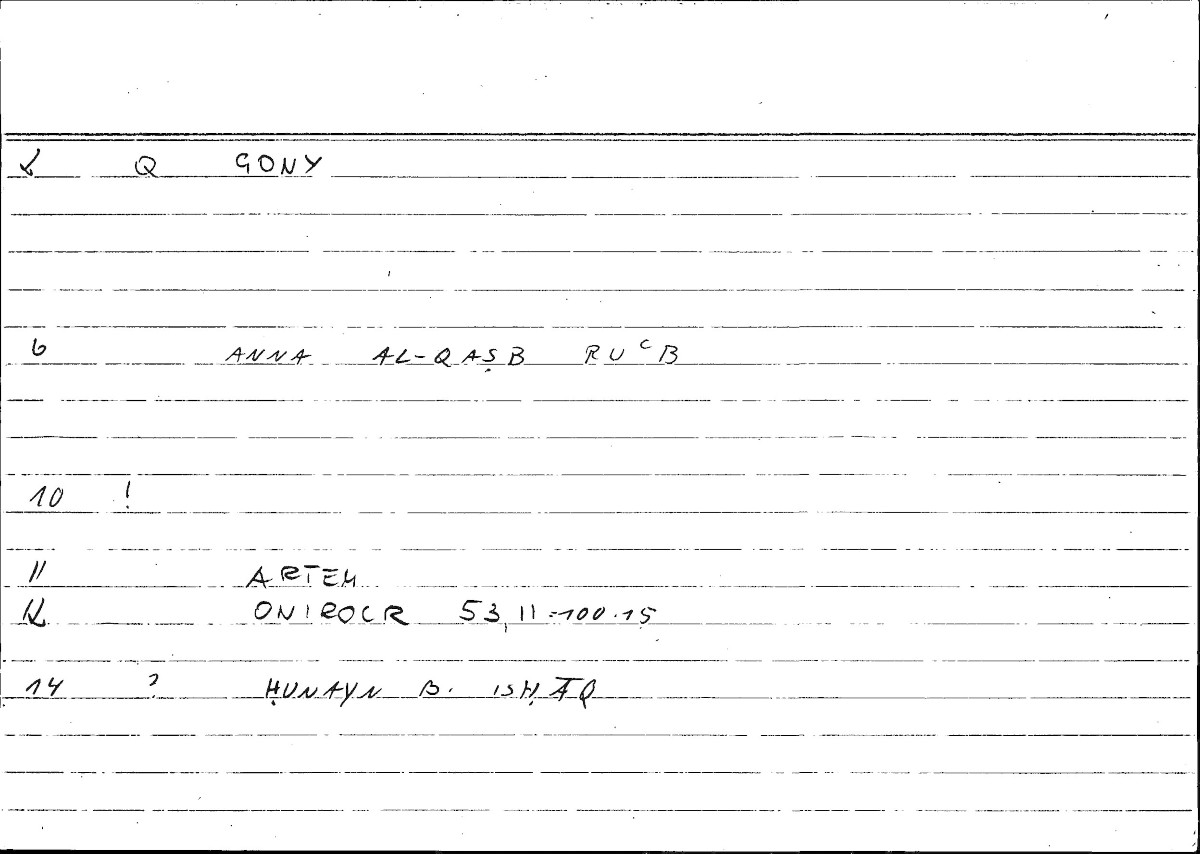 Q GONY
6 ANNA AL-QAṢB RUʿB
10 !
11 ARTEM
12 ONIROCR 53,11=100.15
14 ? ḤUNAYN B. ISḤĀQ